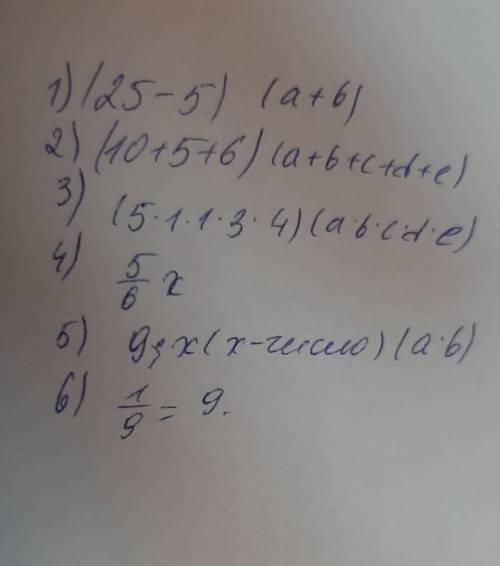 1) (25-5) (a+b)
2) (10+5+6) (a+b+c+d+e)
3) (5·1·1·3·4) (a·b·c·d·e)
4) 5/6 x
5) 9; x (x-число) (a·b)
6) 1/9 = 9.